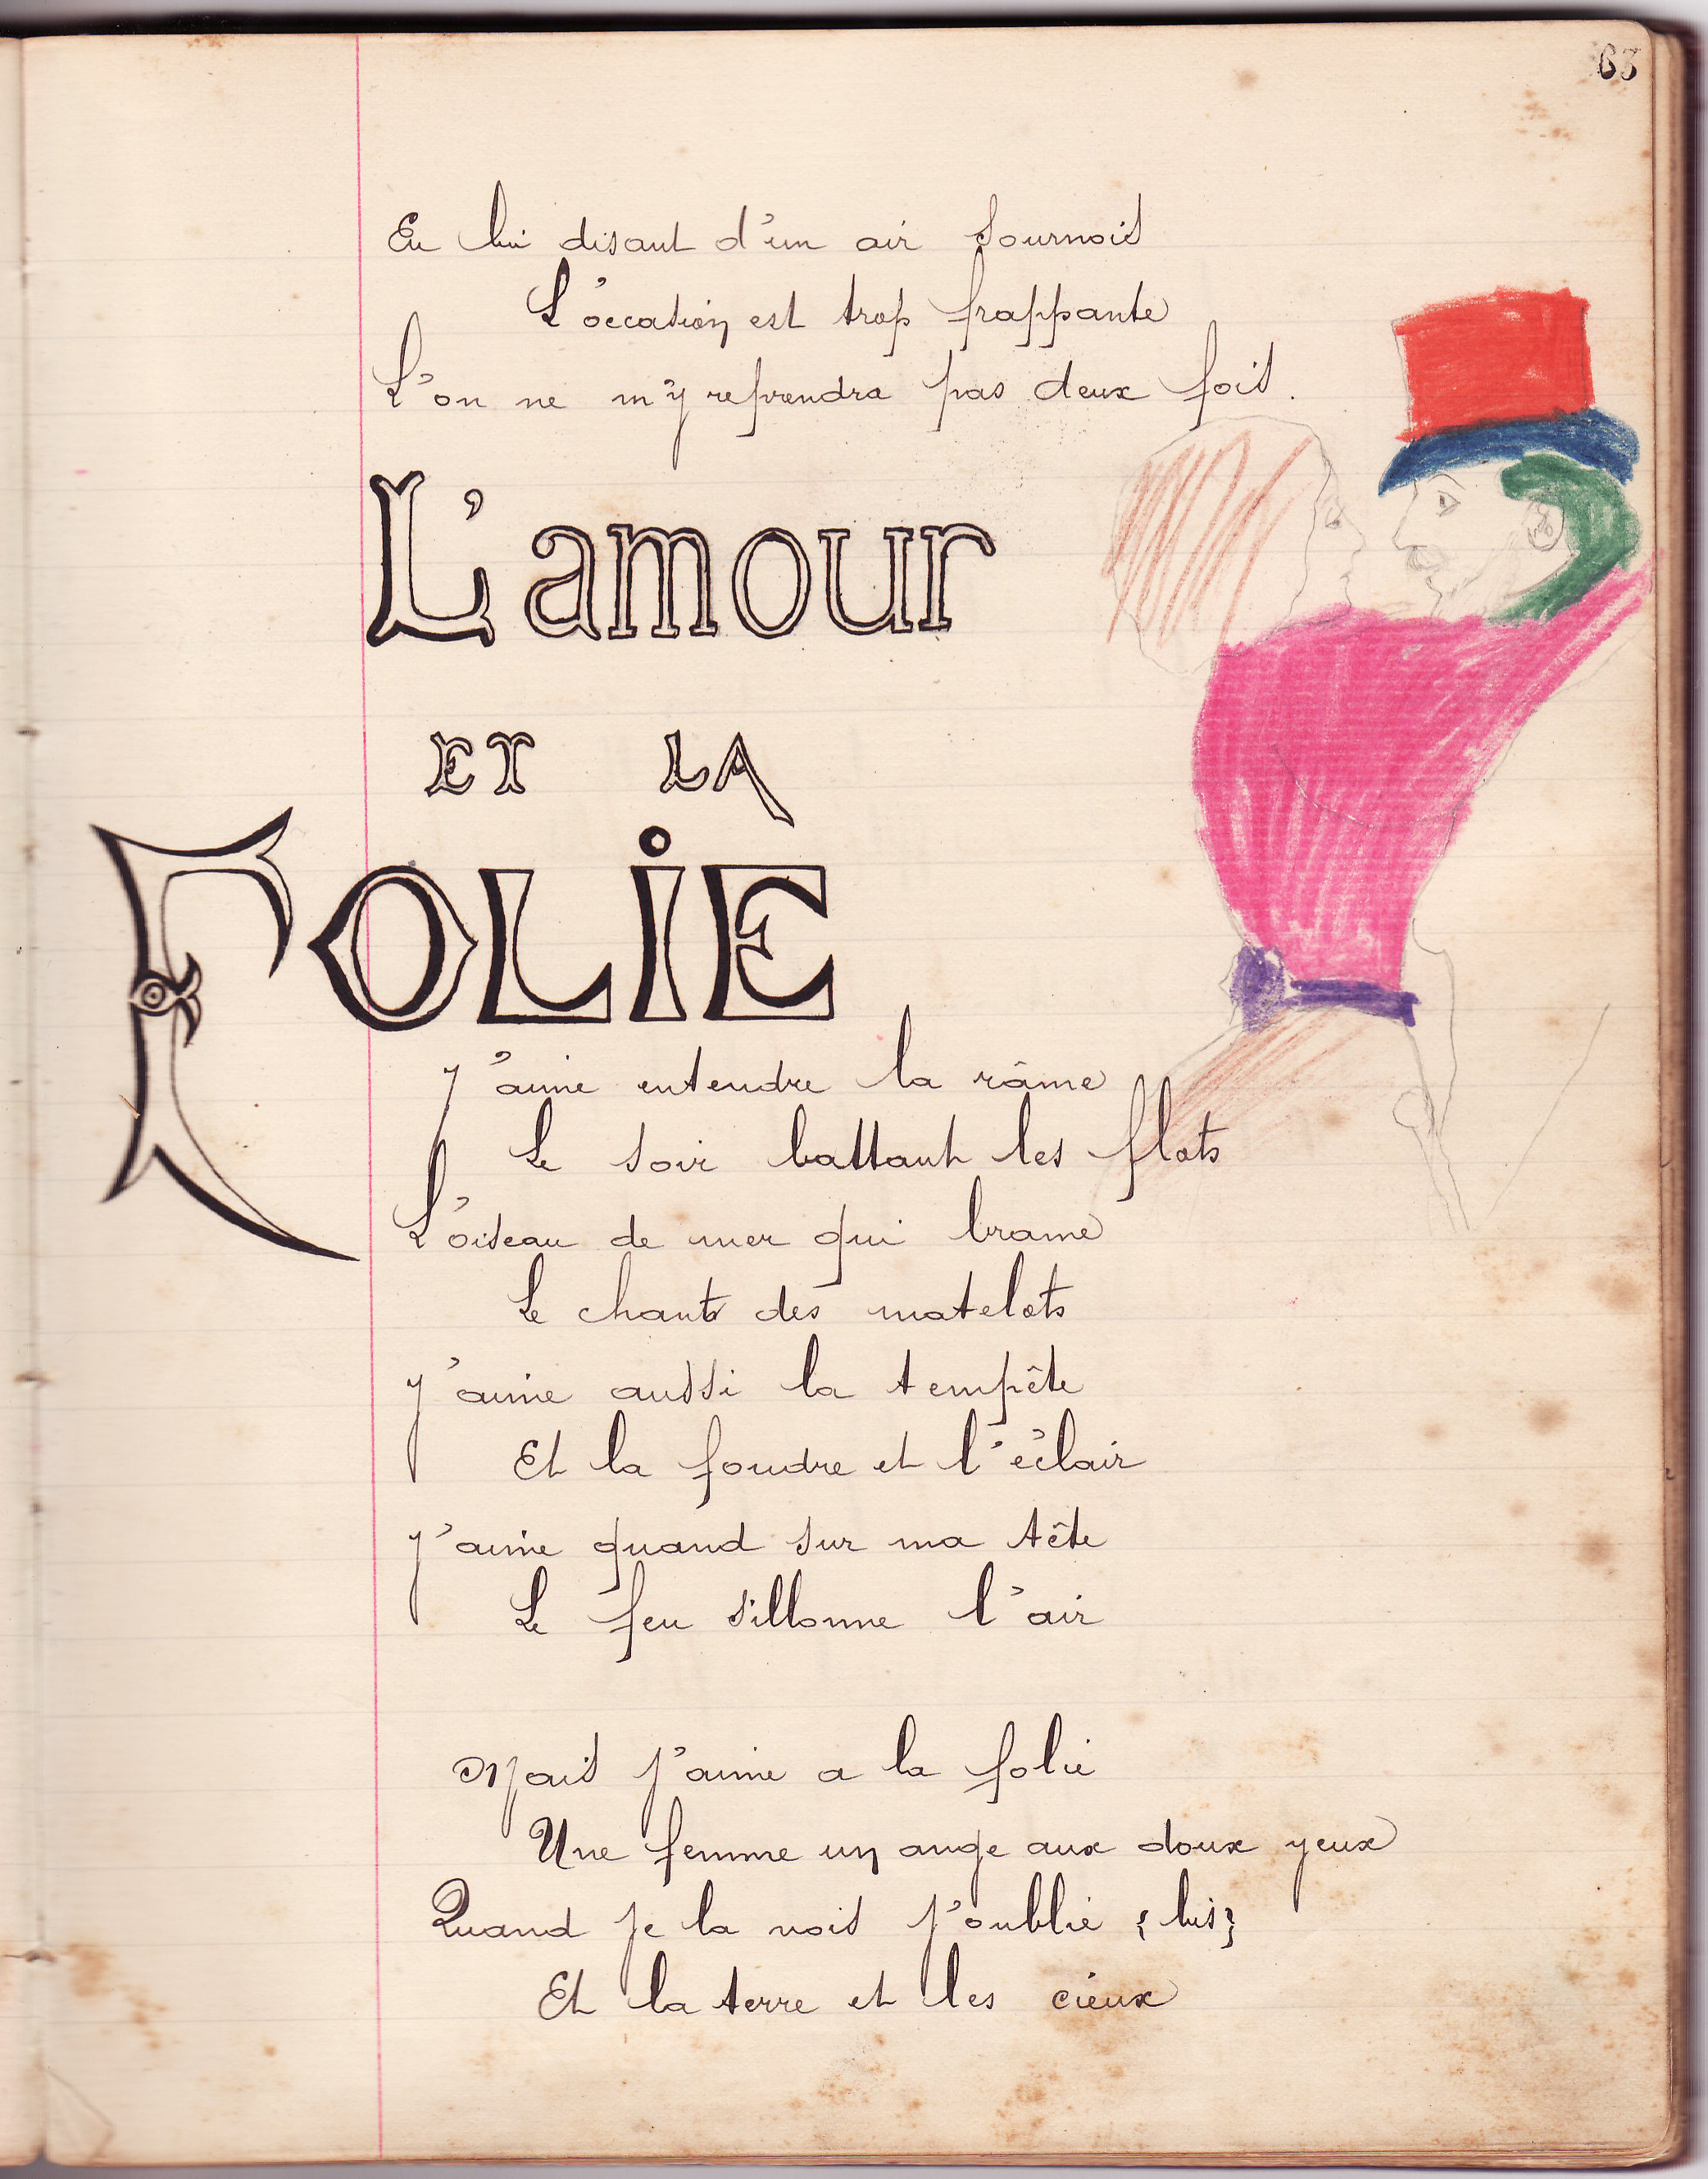 63
En lui disant d'un air sournois
L'occasion est trop frappante
L'on ne m'y reprendra pas deux fois.
L'amour
ET LA
FOLIE
J'aime entendre la râme
Le soir battant les flots
L'oiseau de mer qui brame
Le chants des matelots
J'aime aussi la tempête
Et la foudre et l'éclair
J'aime quand sur ma tête
Le feu sillonne l'air
Mais j'aime a la folie
Une femme un ange aux doux yeux
Quand je la vois j'oublie {bis}
Et la terre et les cieux